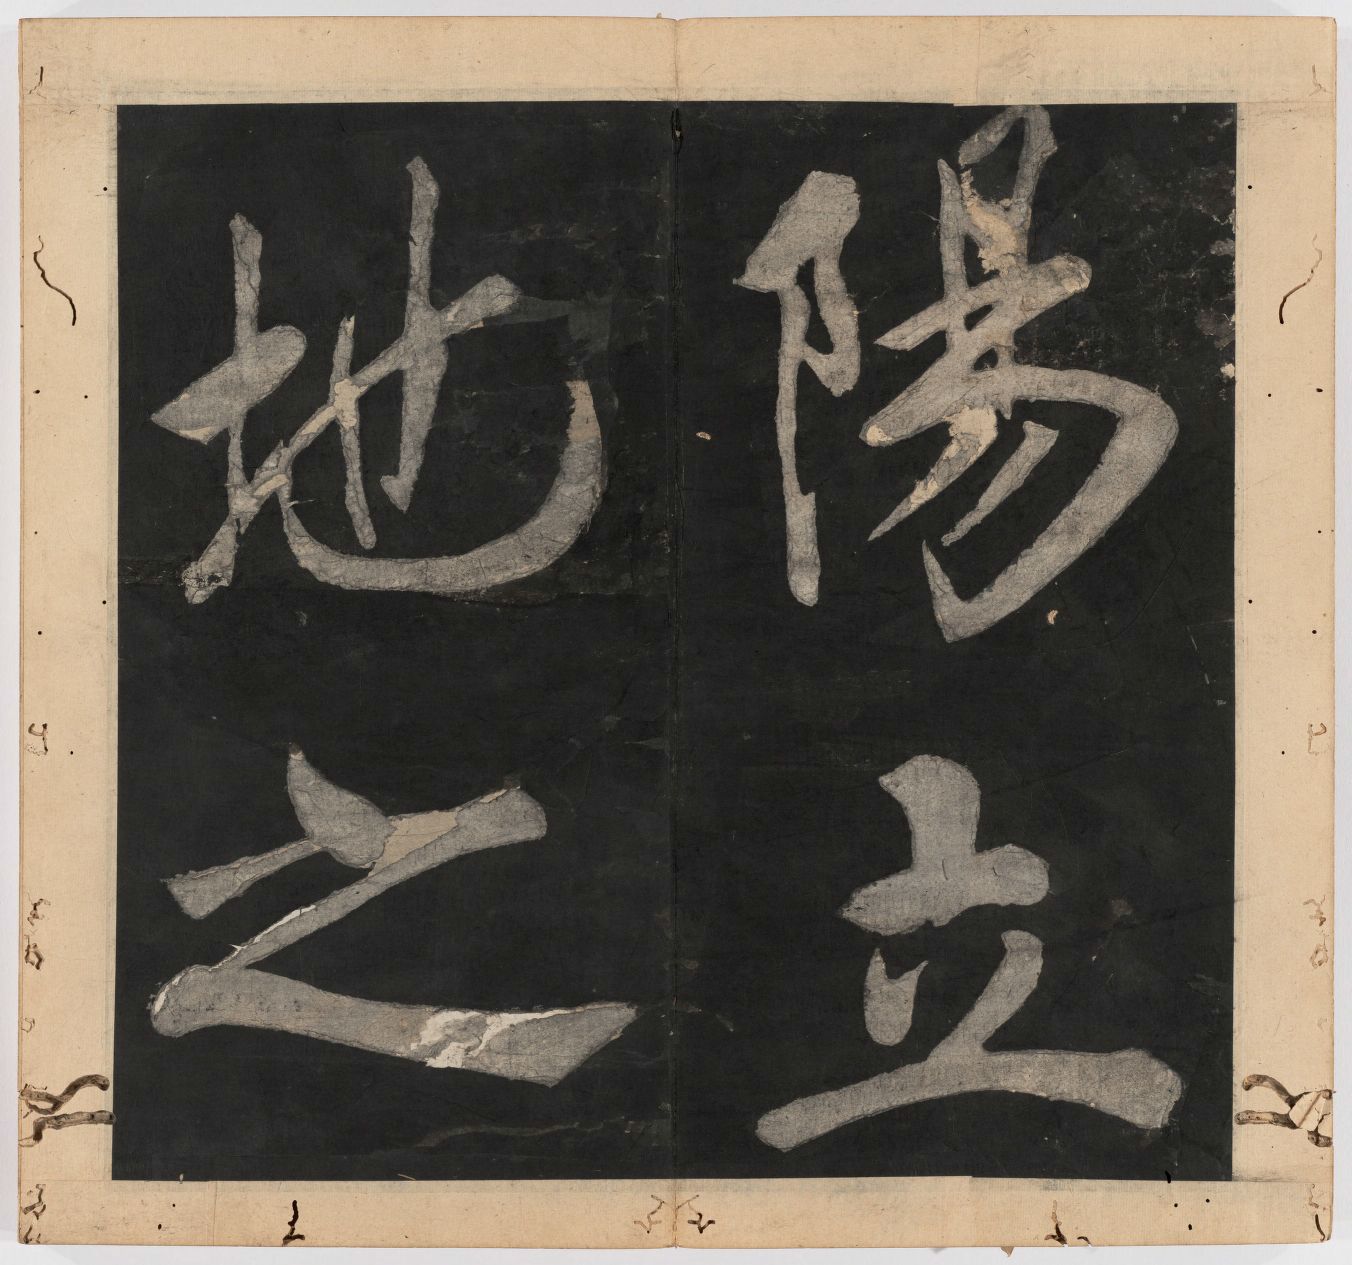 陽立
地之